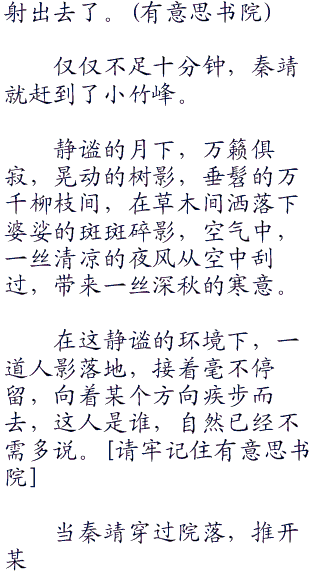 射出去了。(有意思书院)
仅仅不足十分钟，秦靖
就赶到了小竹峰。
静谧的月下，万籁俱
寂，晃动的树影，垂髫的万
千柳枝间，在草木间洒落下
婆娑的斑斑碎影，空气中，
一丝清凉的夜风从空中刮
过，带来一丝深秋的寒意。
在这静谧的环境下，一
道人影落地，接着毫不停
留，向着某个方向疾步而
去，这人是谁，自然已经不
需多说。[请牢记住有意思书
院]
当秦靖穿过院落，推开
某